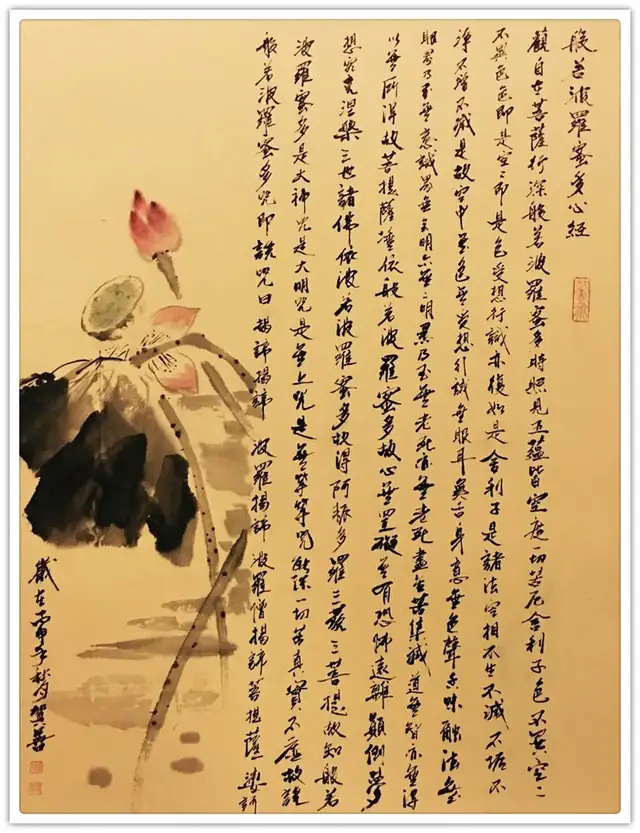 般若波羅蜜多心經
觀自在菩薩行深般若波羅蜜多時照見五蘊皆空度一切苦厄舍利子色不異空々
不異色色即是空々即是色受想行識亦復如是舍利子是諸法空相不生不滅不垢不
淨不增不減是故空中無色無受想行識無眼耳鼻舌身意無色聲香味觸法無
眼界乃至無意識界無無明亦無々明盡乃至無老死亦無老死盡無苦集滅道無智亦無得
以無所得故菩提薩埵依般若波羅蜜多故心無罣礙無有恐怖遠離顛倒夢
想究竟涅槃三世諸佛依波若波羅蜜多故得阿耨多羅三藐三菩提故知般若
波羅蜜多是大神咒是大明咒是無上咒是無等等咒能除一切苦真實不虛故說
般若波羅蜜多咒即說咒曰揭諦揭諦 波羅揭諦波羅僧揭諦菩提薩婆訶
歲在丙申年秋月